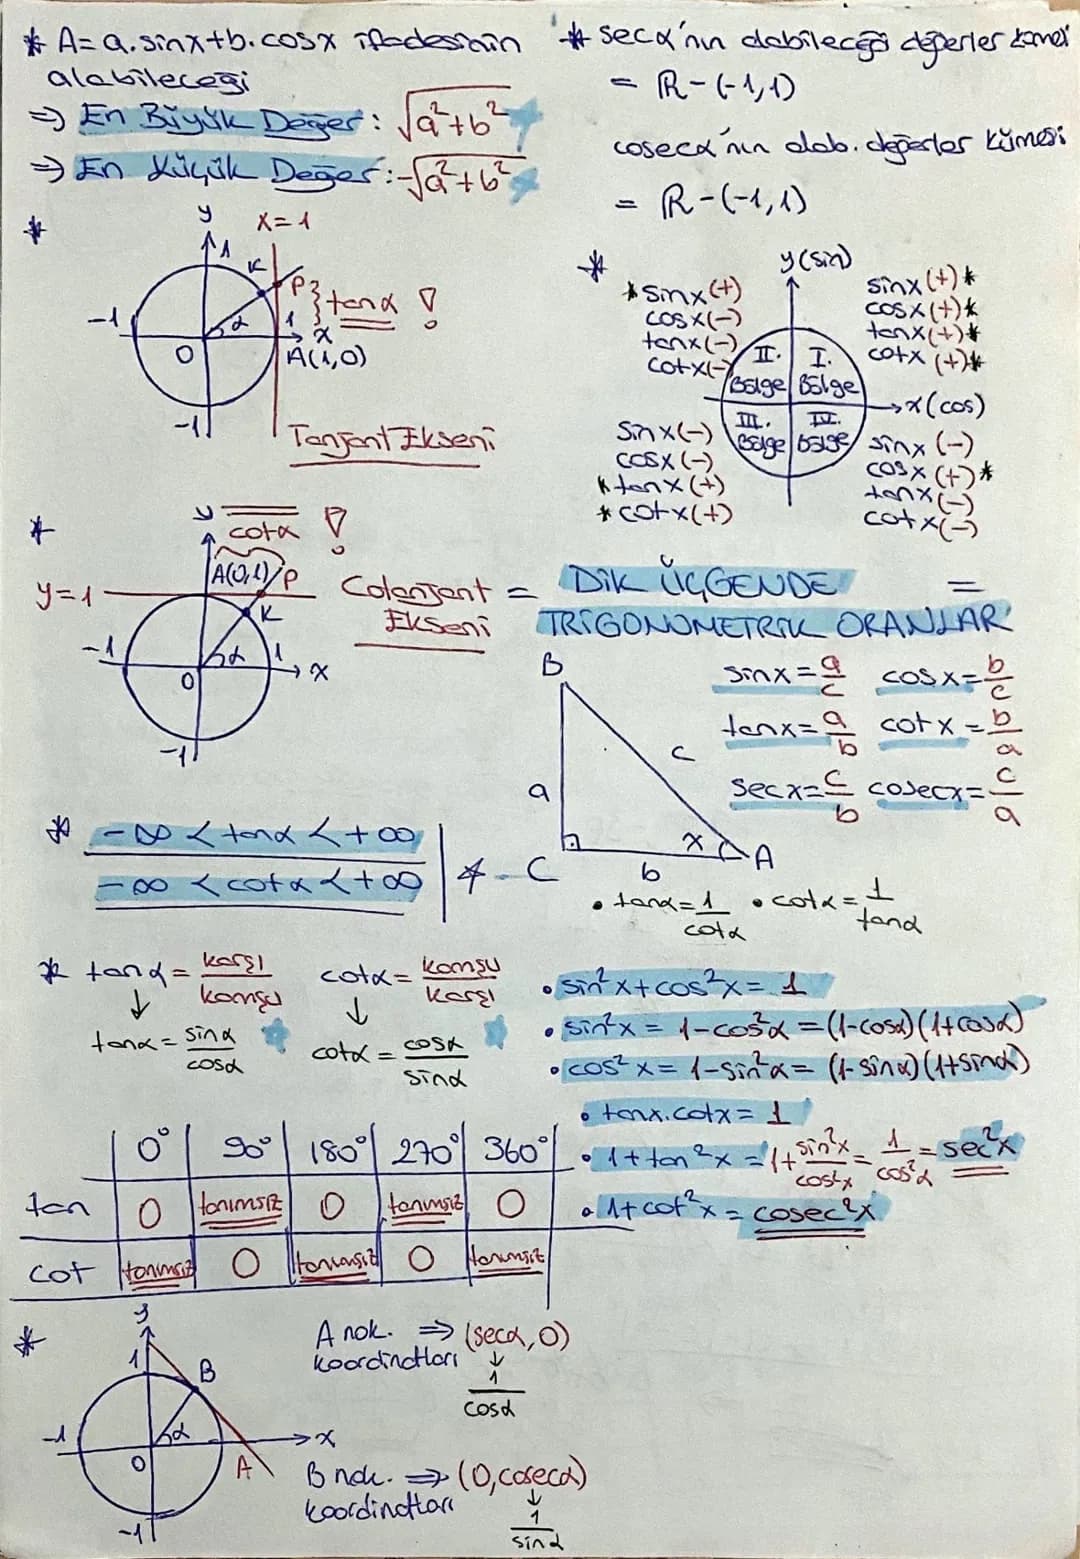 * A= a.sinx+b.cosx ifadesinin
alabileceği
=> En Büyük Değer: √a²+b²
=> En Küçük Değer: -√a²+b²
* secα'nın alabileceği değerler kümesi
= R-(-1,1)
cosecα'nın alab. değerler kümesi
= R-(-1,1)
*
y
x=1
1
K
P
} tanα !
-1
α
1
x
O
A(1,0)
-1
Tanjant Ekseni
*
y(sin)
* sinx(+)
cosx(-)
tanx(-)
cotx(-)
sinx(+)*
cosx(+)*
tanx(+)*
cotx(+)*
II.
Bölge
I.
Bölge
x(cos)
III.
Bölge
IV.
Bölge
sinx(-)
cosx(-)
* tanx(+)
* cotx(+)
sinx(-)
cosx(+)*
tanx(-)
cotx(-)
*
y
cotα !
A(0,1)
P
y=1
K
-1
α
1
x
O
-1
Cotanjant
Ekseni
= DİK ÜÇGENDE =
TRİGONOMETRİK ORANLAR
B
a
c
C
b
x
A
sinx=a/c cosx=b/c
tanx=a/b cotx=b/a
secx=c/b cosecx=c/a
* -∞ < tanα < +∞
-∞ < cotα < +∞
• tanα=1/cotα • cotα=1/tanα
* tanα= karşı/komşu cotα= komşu/karşı
↓ ↓
tanα= sinα/cosα cotα= cosα/sinα
• sin²x+cos²x= 1
• sin²x= 1-cos²α =(1-cosα)(1+cosα)
• cos²x= 1-sin²α= (1-sinα)(1+sinα)
• tanx.cotx= 1
• 1+tan²x = 1+sin²x/cos²x = 1/cos²α = sec²x
• 1+cot²x = cosec²x
0° 90° 180° 270° 360°
tan 0 tanımsız 0 tanımsız 0
cot tanımsız 0 tanımsız 0 tanımsız
*
y
1
B
-1
α
x
O
A
-1
A nok. => (secα,0)
koordinatları ↓
1/cosα
B nok. => (0,cosecα)
koordinatları ↓
1/sinα